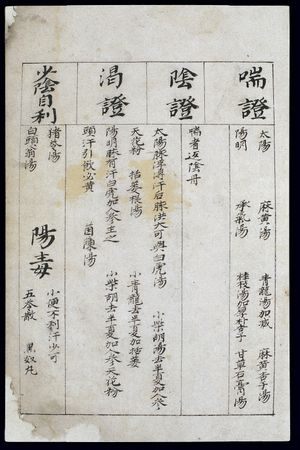 喘證
太陽 麻黃湯 青龍湯加減 麻黃杏子湯
陽明 承氣湯 桂枝湯加厚朴杏子 甘草石膏湯
陰證
喘者返陰丹
渴證
太陽脉浮溥汗后脉洪大可與白虎湯 小柴胡湯去半夏加人參
天花粉 栝蒌根湯 小青龍去半夏加栝蒌
陽明脉有汗白虎加人參主之 小柴胡去半夏加人參天花粉
頭汗引飲必黃 茵陳湯
少陰自利
豬苓湯
白頭翁湯
陽毒
小便不利汗少可
五苓散 黑奴丸